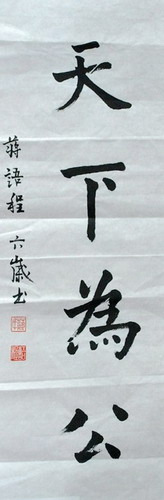 天下為公
蔣語程 六歲书